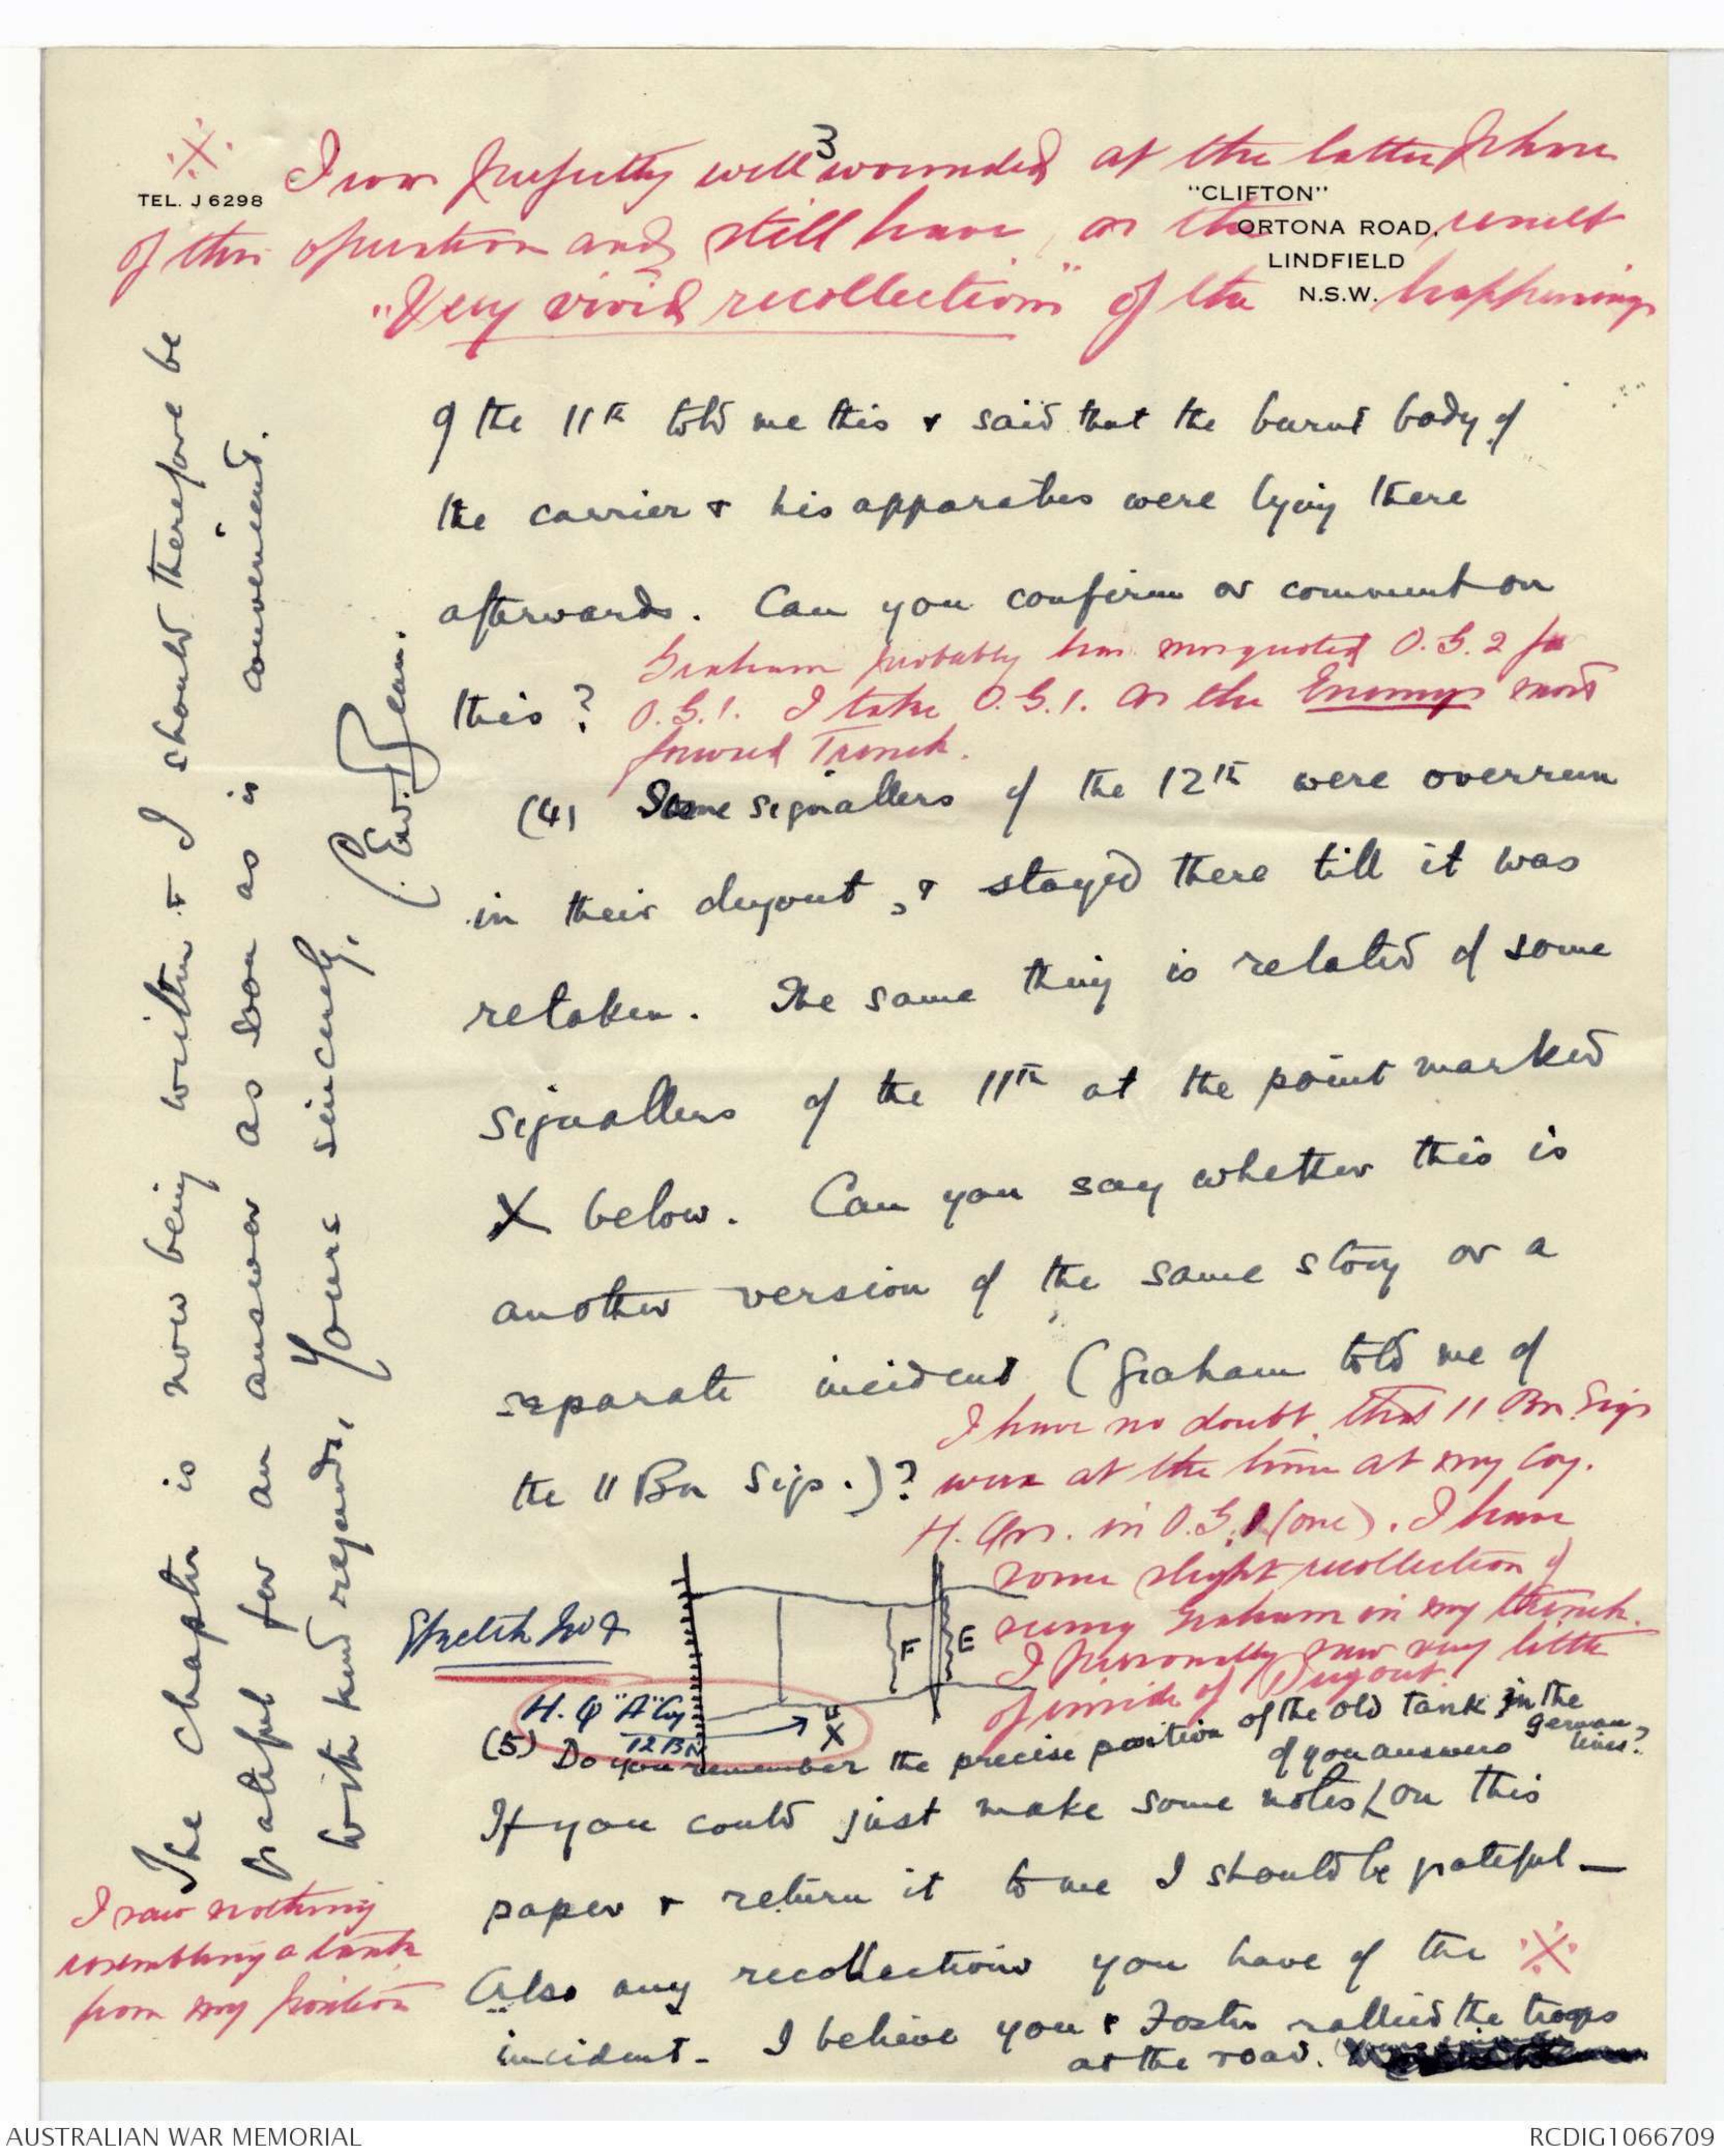 3
※ I was perfectly well wounded at the latter phase
TEL. J 6298
"CLIFTON"
ORTONA ROAD,
LINDFIELD
N.S.W.
of this operation and still have, as the result
"Very vivid recollections" of the happenings
of the 11th told me this & said that the burnt body of
the carrier & his apparatus were lying there
afterwards. Can you confirm or comment on
this?
Graham probably has misquoted O.G.2 for
O.G.1. I take O.G.1. as the Enemys most
forward Trench.
(4) Some signallers of the 12th were overrun
in their dugout, & stayed there till it was
retaken. The same thing is related of some
signallers of the 11th at the point marked
X below. Can you say whether this is
another version of the same story or a
separate incident (Graham told me of
the 11 Bn Sigs.)?
I have no doubt that 11 Bn Sigs
were at the time at my Coy.
H. Qrs. in O.G.1 (one). I have
some slight recollection of
seeing Graham in my trench.
I personally saw very little
of inside of Dugout.
Sketch No 2
F
E
H.Q "A" Coy
12 BN
X
(5) Do you remember the precise position of the old tank in the
german lines?
If you could just make some notes / of your answers on this
paper & return it to me I should be grateful -
Also any recollections you have of the ※
incident. I believe you & Foster rallied the troops
at the road.
I saw nothing
resembling a tank
from my position
The chapter is now being written & I should therefore be
grateful for an answer as soon as is convenient.
With kind regards, Yours sincerely,
C.E.W. Bean.
AUSTRALIAN WAR MEMORIAL
RCDIG1066709